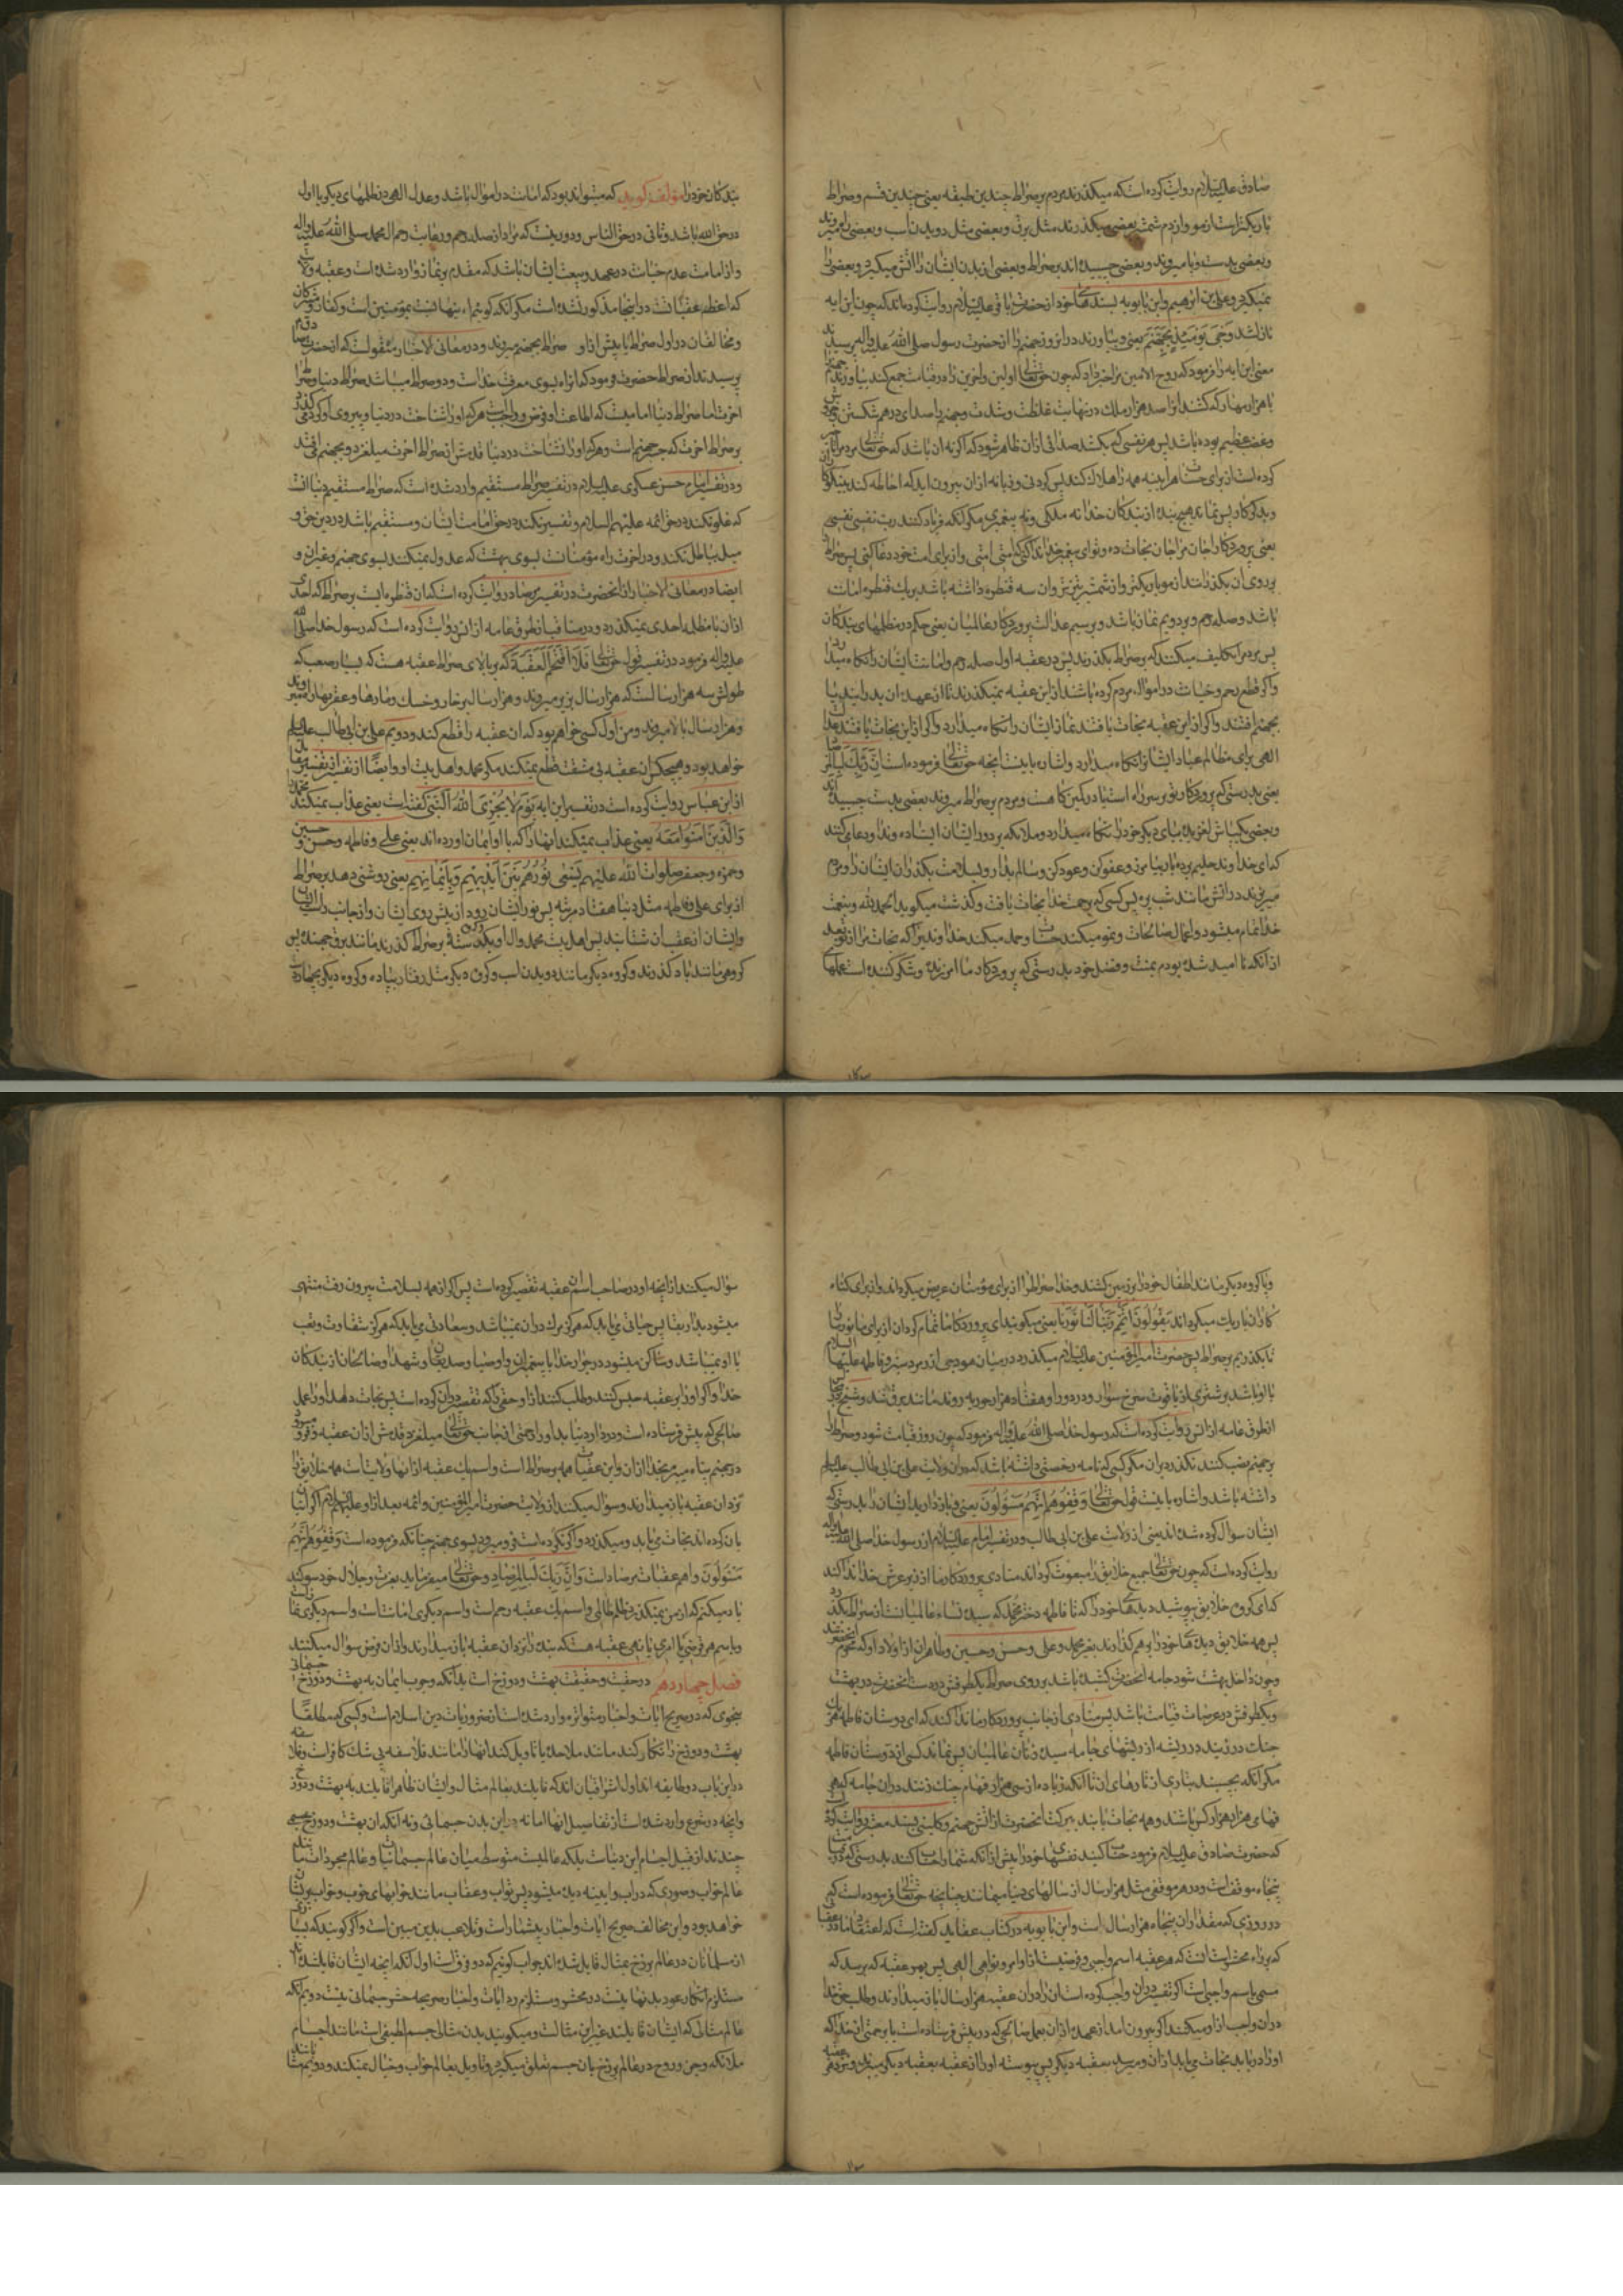 صادق علیه السلام روایت کرده است که میگذرند مردم بر صراط چندین طبقه یعنی چندین قسم و صراط
باریکتر است از مو و از دم شمشیر بعضی میگذرند مثل برق و بعضی مثل دویدن اسب و بعضی راه میروند
و بعضی بدست و پا میروند و بعضی چسبیده اند بر صراط و بعضی از بدن ایشان را آتش میگیرد و بعضی را
نمیگیرد و علی بن ابرهیم و ابن بابویه بسندهای خود از حضرت باقر علیه السلام روایت کرده اند که چون این آیه
نازل شد وَجِیَ یَومَئِذٍ بِجَهَنَّمَ یعنی و بیاورند در انروز جهنم را از حضرت رسول صلی الله علیه واله پرسیدند
معنی این آیه را فرمود که روح الامین مرا خبر داد که چون حق تعالی اولین و آخرین را در قیامت جمع کند بیاورند جهنم را
با هزار مهار که کشند انرا صد هزار ملک در نهایت غلظت و شدت و جهنم را صدای درهم شکستن
کرده است از برای حساب هراینه همه را هلاک کند پس گردنی و زبانه از ان بیرون آید که احاطه کند بنیکوکار
و بدکردار پس نماند هیچ بنده از بندگان خدا نه ملکی و نه پیغمبری مگر انکه فریاد کنند رب نفسی نفسی
بر روی ان بگذرانند از مو باریکتر و از شمشیر تیزتر و ان سه قنطره داشته باشد بر یک قنطره امانت
باشد و صله رحم و بر دویم نماز باشد و بر سیم عدالت پروردگار عالمیان یعنی حکم در مظلمهای بندگان
پس مردم را تکلیف میکنند که بر صراط بگذرند پس در عقبه اول صله رحم و امانت ایشان را نگاه میدارد
و اگر قطع رحم و خیانت در اموال مردم کرده باشند از این عقبه نمیگذرند تا از عهده ان بدر ایند یا
بجهنم افتند و اگر از این عقبه نجات یافتند نماز ایشان را نگاه میدارد و اگر از این نجات یافتند عدل
الهی برای مظالم عباد ایشان را نگاه میدارد و اشاره باینست آنچه حق تعالی فرموده است اِنَّ رَبَّکَ لَبِالمِرصاد
یعنی بدرستی که پروردگار تو بر سر راه است یا در کمین گاهست و مردم بر صراط میروند بعضی بدست چسبیده اند
و بعضی یکپاش لغزیده بپای دیگر خود را نگاه میدارد و ملائکه بر دور ایشان ایستاده و ندا و دعا میکنند
که ای خداوند حلیم بردبار بیامرز و عفو کن و عود کن و سالم بدار و بسلامت بگذران ایشان را و مردم
میریزند در آتش مانند شب پره پس کسی که برحمت خدا نجات یافت و گذشت میگوید الحمد لله و بنعمت
خدا تمام میشود اعمال صالحات و نمو میکند حسنات و حمد میکنم خداوندیرا که نجات مرا از تو بعد
از آنکه ناامید شده بودم بمنت و فضل خود بدرستی که پروردگار ما امرزنده و شکر کننده است عملهای
بندگان خود را مؤلف گوید که میتواند بود که امانت در اموال باشد و عدل الهی در ظلمهای دیگر یا اول
در حق الله باشد و ثانی در حق الناس و دور نیست که مراد از صله رحم رعایت رحم ال محمد صلی الله علیه واله
و از امانت عدم خیانت در عهد و بیعت ایشان باشد که مقدم بر نماز وارد شده است و عقبه ولایت
که اعظم عقباتست در اینجا مذکور نشده است مگر انکه گوئیم اینها نسبت بمومنین است و کفار و مشرکان
و مخالفان در اول صراط یا پیش از او صراط بجهنم میروند و در معانی الاخبار منقول است که از حضرت صادق
پرسیدند از صراط حضرت فرمود که انراه بسوی معرفت خداست و دو صراط میباشد صراط دنیا و صراط
اخرت اما صراط دنیا امامیست که اطاعت او فرض و واجب است هر که او را شناخت در دنیا و پیروی او کرد
بر صراط اخرت که جسر جهنم است و هر که او را نشناخت در دنیا قدمش از صراط اخرت میلغزد و بجهنم می افتد
و در تفسیر امام حسن عسکری علیه السلام در تفسیر صراط مستقیم وارد شده است که صراط مستقیم دنیا انست
که غلو نکند در حق ائمه علیهم السلام و تقصیر نکند در حق امامت ایشان و مستقیم باشد در دین حق و
میل بباطل نکند و در اخرت راه مؤمنانست بسوی بهشت که عدول نمیکنند بسوی جهنم و غیر ان و
ایضا در معانی الاخبار از انحضرت در تفسیر مرصاد روایت کرده است که ان قنطره ایست بر صراط که احدی
از ان با مظلمه احدی نمیگذرد و در مناقب از طرق عامه از انس روایت کرده است که رسول خدا صلی الله
علیه واله فرمود در تفسیر قول حق تعالی فَلَا اقتَحَمَ العَقَبَةَ که بر بالای صراط عقبه هست که بسیار صعب که
طولش سه هزار سالست که هزار سال بزیر میروند و هزار سال بر خار و خسک و مارها و عقربها راه میروند
و هزار سال بالا میروند و من اول کسی خواهم بود که ان عقبه را قطع کند و دویم علی بن ابی طالب علیه السلام
خواهد بود و هیچکس ان عقبه بی مشقت قطع نمیکند مگر محمد و اهل بیت او و ایضا از تفسیر مقاتل
از ابن عباس روایت کرده است در تفسیر این آیه یَومَ لا یُخزِی اللهُ النَّبِیَّ گفته است یعنی عذاب نمیکند محمد را
وَالَّذینَ امَنُوا مَعَهُ یعنی عذاب نمیکند انها را که با او ایمان اورده اند یعنی علی و فاطمه و حسن و حسین
و حمزه و جعفر صلوات الله علیهم یَسعی نُورُهُم بَینَ اَیدیهِم وَبِاَیمانِهِم یعنی روشنی دهد بر صراط
از برای علی و فاطمه مثل دنیا هفتاد مرتبه پس نور ایشان رود از پیش روی ایشان و از جانب راست ایشان
و ایشان از عقب ان شتابند پس اهل بیت محمد و ال او یکدسته بر صراط گذرند مانند برق جهنده پس
گروهی مانند باد گذرند و گروه دیگر مانند دویدن اسب و گروه دیگر مثل رفتار پیاده و گروه دیگر بچهاردست
و پا و گروه دیگر مانند اطفال خود را بر زمین کشند و خدا صراط را از برای مؤمنان عریض میگرداند و از برای گناه
کاران باریک میگرداند یَقُولُونَ رَبَّنا اَتمِم لَنا نُورَنا یعنی میگویند ای پروردگار ما تمام گردان از برای ما نور ما را
تا بگذریم بر صراط پس حضرت امیرالمؤمنین علیه السلام میگذرد در میان هودجی از زمرد سبز و فاطمه علیها السلام
با او باشد بر شتری از یاقوت سرخ سوار و در دور او هفتاد هزار حوریه روند مانند برق تند و شیخ
از طرق عامه از انس روایت کرده است که رسول خدا صلی الله علیه واله فرمود که چون روز قیامت شود و صراط را
بر جهنم نصب کنند نگذرد بر ان مگر کسی که نامه رخصتی داشته باشد که در ان ولایت علی بن ابی طالب علیه السلام
داشته باشد و اشاره باینست قول حق تعالی وَقِفُوهُم اِنَّهُم مَسؤُلُونَ یعنی و بازدارید ایشان را بدرستی که
ایشان سوال کرده شده اند یعنی از ولایت علی بن ابی طالب و در تفسیر امام علیه السلام از رسول خدا صلی الله علیه واله
روایت کرده است که چون حق تعالی جمیع خلایق را مبعوث گرداند منادی پروردگار ما از زیر عرش خدا ندا کند
که ای گروه خلایق بپوشید دیدهای خود را که تا فاطمه دختر محمد که سیده نساء عالمیانست از صراط بگذرد
پس همه خلایق دیدهای خود را بر هم گذارند بغیر محمد و علی و حسن و حسین و طاهران از اولاد او که محرم انحضرتند
و چون داخل بهشت شود جامه انحضرت کشیده باشد بر روی صراط یکطرفش در دست انحضرت در بهشت
و یکطرفش در عرصات قیامت باشد پس منادی از جانب پروردگار ما ندا کند که ای دوستان فاطمه
چنک در زنید در ریشه از ریشهای جامه سیده زنان عالمیان پس نماند کسی از دوستان فاطمه
مگر آنکه بچسبند بتاری از تارهای ان تا آنکه زیاده از سی هزار فئام چنک زنند در ان جامه که هر
فئامی هزار هزار کس باشند و همه نجات یابند ببرکت انحضرت از اتش جهنم و کلینی بسند معتبر روایت کرده
که حضرت صادق علیه السلام فرمود حساب کنید نفسهای خود را پیش از آنکه شما را حساب کنند بدرستی که در قیامت
پنجاه موقف است و در هر موقفی مثل هزار سال از سالهای دنیا میمانند چنانچه حق تعالی فرموده است که
در روزی که مقدار ان پنجاه هزار سال است و ابن بابویه در کتاب عقاید گفته است که اعتقاد ما در عقبات
که بر راه محشر است انست که هر عقبه اسم واجبی و فرضیست از اوامر و نواهی الهی پس بهر عقبه که برسد که
مسمی باسم واجبی است اگر تقصیر در ان واجب کرده است ان را در ان عقبه هزار سال باز میدارند و طلب حق خدا
در ان واجب از او میکنند اگر بیرون آمد از عهده ان بعمل صالحی که در پیش فرستاده است یا برحمتی از خدا که
او را دریابد نجات می یابد از ان و میرسد بعقبه دیگر پس پیوسته او را از عقبه بعقبه دیگر میبرند و نزد هر عقبه
سؤال میکنند از انچه او در صاحب اسم ان عقبه تقصیر کرده است پس اگر از همه بسلامت بیرون رفت منتهی
میشود بدار بقا پس حیاتی می یابد که هرگز مرک در ان نمیباشد و سعادتی می یابد که هرگز شقاوت و تعب
با او نمیباشد و ساکن میشود در جوار خدا با پیغمبران و اوصیا و صدیقان و شهدا و صالحان از بندگان
خدا و اگر او را بر عقبه حبس کنند و طلب کنند از او حقی را که تقصیر در ان کرده است پس نجات ندهد او را عمل
صالحی که پیش فرستاده است و در نیابد او را رحمتی از جانب حق تعالی میلغزد قدمش از ان عقبه و فرو میرود
در جهنم پناه میبرم بخدا از ان و این عقبات همه بر صراط است و اسم یک عقبه از انها ولایت است همه خلایق را
نزد ان عقبه باز میدارند و سؤال میکنند از ولایت حضرت امیرالمؤمنین و ائمه بعد از او علیهم السلام اگر اتیان
بان کرده اند نجات می یابد و میگذرد و اگر نکرده است فرو میرود بسوی جهنم چنانکه فرموده است وَقِفُوهُم اِنَّهُم
مَسؤُلُونَ و اهم عقبات مرصاد است وَاِنَّ رَبَّکَ لَبِالمِرصادِ و حق تعالی میفرماید بعزت و جلال خود سوگند
یاد میکنم که از من نمیگذرد ظلم ظالمی و اسم یک عقبه رحم است و اسم دیگری امانت است و اسم دیگری نماز است
و باسم هر فرضی یا امری یا نهیی عقبه هست که بنده را نزد ان عقبه باز میدارند و از ان فرض سؤال میکنند
فصل چهاردهم در حقیت و حقیقت بهشت و دوزخ است بدانکه وجوب ایمان به بهشت و دوزخ جسمانی
بنحوی که در صریح ایات و اخبار متواتره وارد شده است از ضروریات دین اسلام است و کسی که مطلقا
بهشت و دوزخ را انکار کند مانند ملاحده یا تاویل کند انها را مانند فلاسفه بی شک کافر است و فلاسفه
در این باب دو طایفه اند اول اشراقیان اند که قایلند بعالم مثال و ایشان ظاهرا قایلند به بهشت و دوزخ
و انچه در شرع وارد شده است از تفاصیل انها اما نه در این بدن جسمانی و نه آنکه ان بهشت و دوزخ جسمی
چندند از قبیل اجسام این دنیا است بلکه عالمیست متوسط میان عالم جسمانیات و عالم مجردات مانند
عالم خواب و صوری که در اب و اینه دیده میشود پس ثواب و عقاب مانند خوابهای خوب و خواب پریشان
خواهد بود و این مخالف صریح ایات و اخبار بیشمار است و تلاعب بدین مبین است و اگر گویند که بسیاری
از مسلمانان در عالم برزخ بمثال قایل شده اند جواب گوئیم که دو فرق است اول انکه انچه ایشان قایل شده اند
مستلزم انکار عود بدنها نیست در محشر و مستلزم رد ایات و اخبار صریحه حشر جسمانی نیست دویم آنکه
عالم مثالی که ایشان قایلند غیر این مثالست و میگویند بدن مثالی جسم لطیفی است مانند اجسام
ملائکه و جن و روح در عالم برزخ بان جسم تعلق میگیرد و تاویل بعالم خواب و خیال نمیکنند و دویم مشائیانند